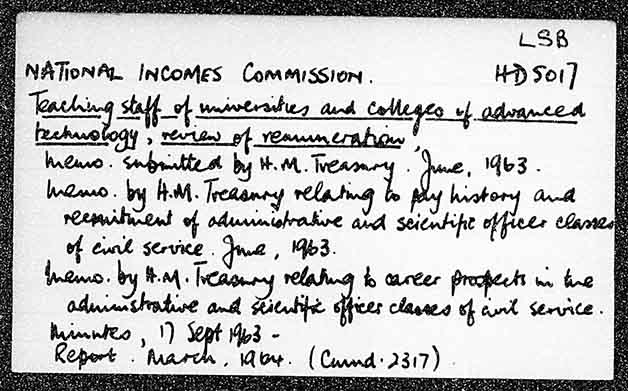 LSB
NATIONAL INCOMES COMMISSION. HD5017
Teaching staff of universities and colleges of advanced
technology, review of remuneration,
Memo. submitted by H.M. Treasury. June, 1963.
Memo. by H.M. Treasury relating to pay history and
recruitment of administrative and scientific officer classes
of civil service. June, 1963.
Memo. by H.M. Treasury relating to career prospects in the
administrative and scientific officer classes of civil service.
Minutes, 17 Sept 1963 -
Report. March, 1964. (Cmnd. 2317)